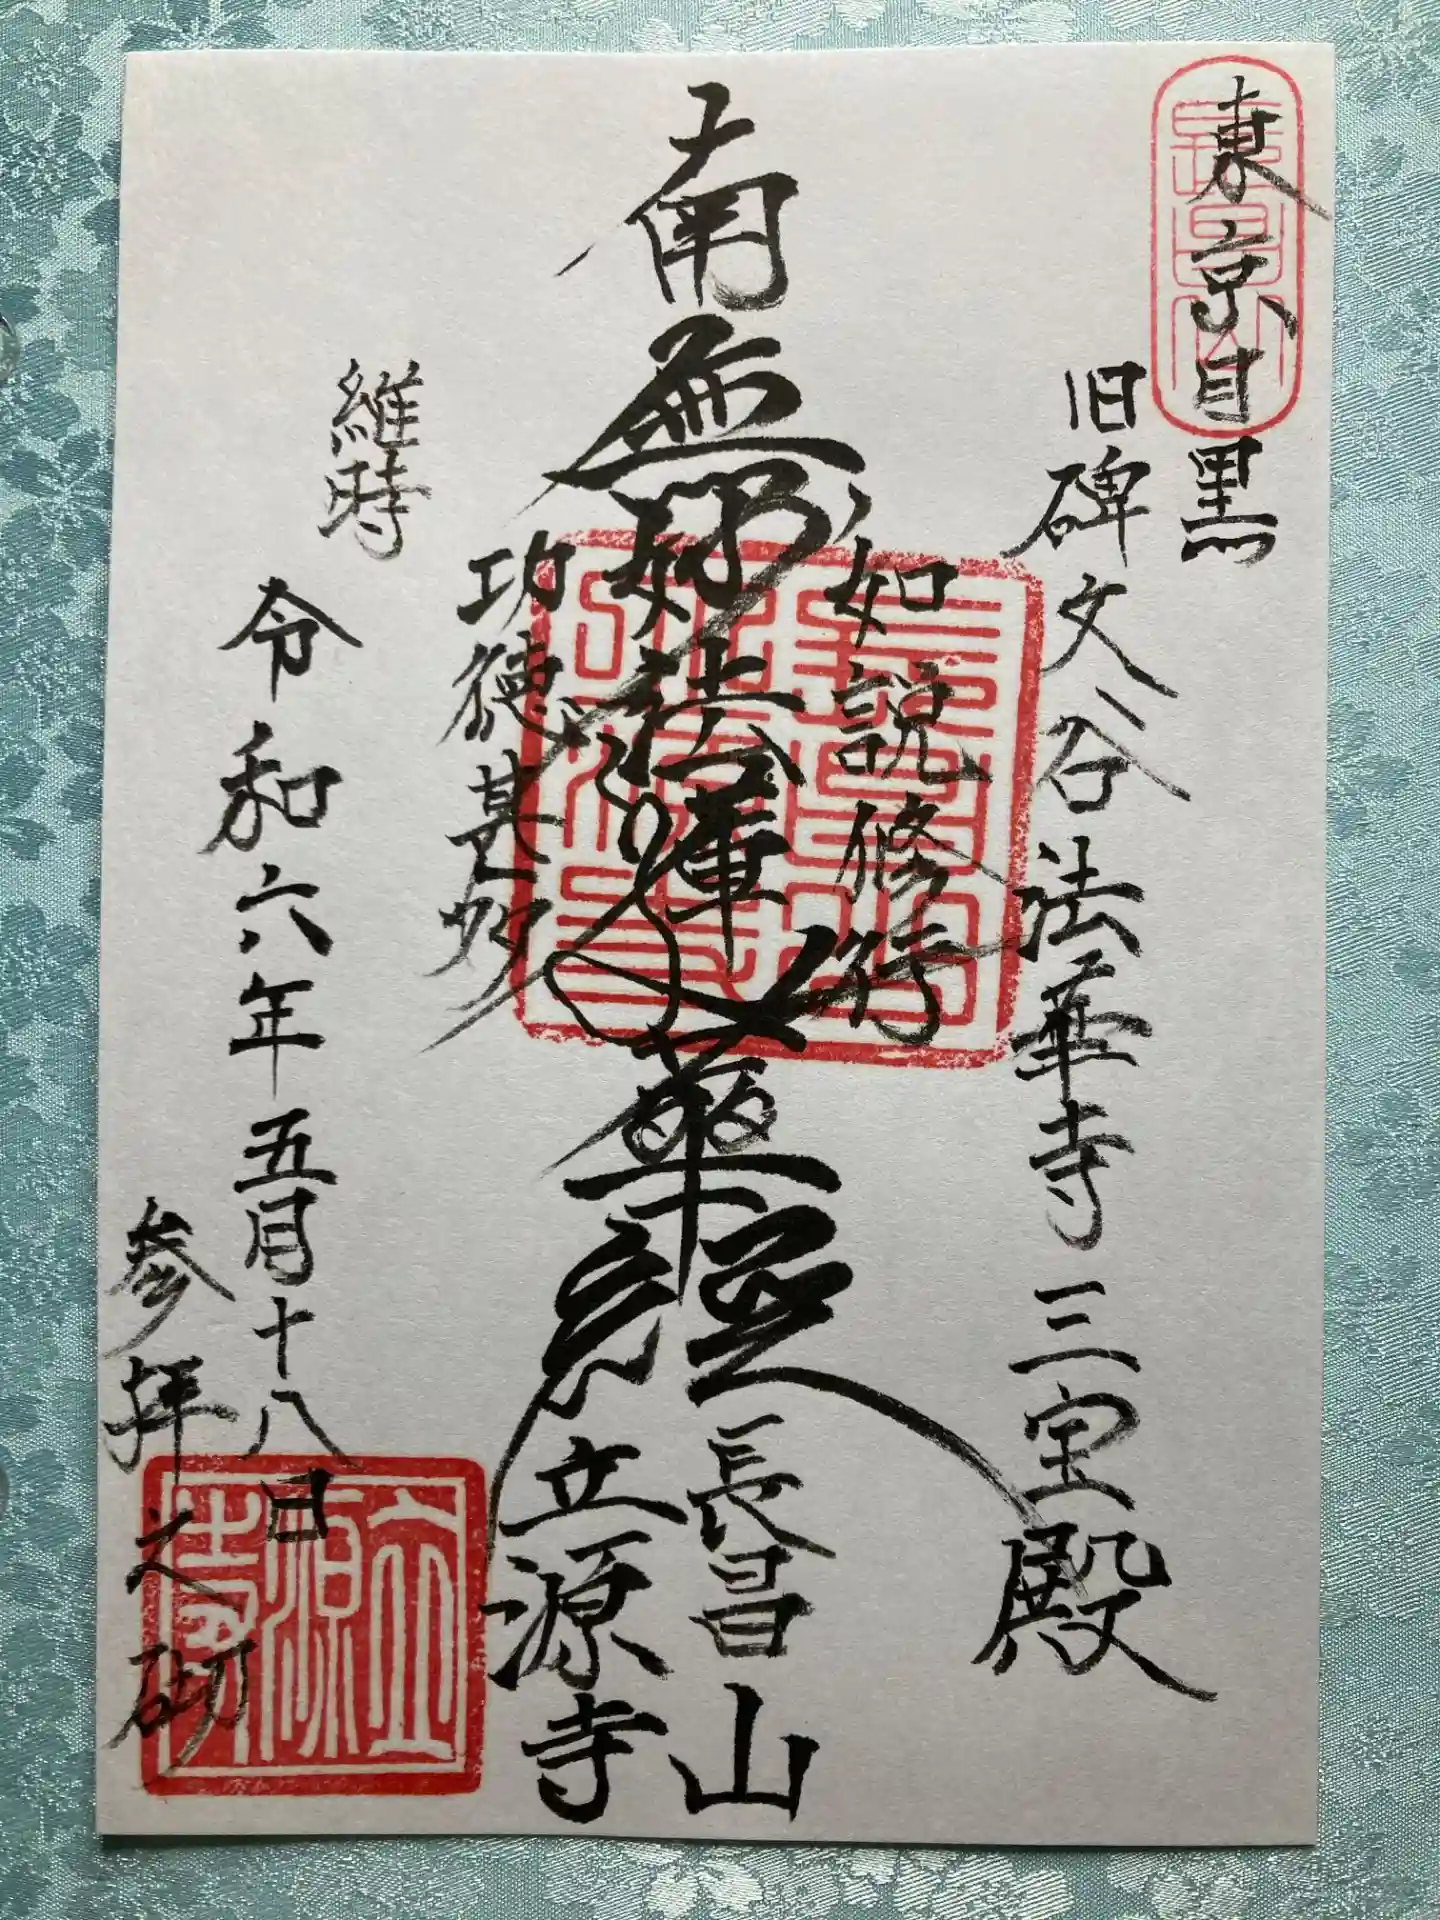 東京目黒
旧碑文谷法華寺三宝殿
如説修行
南無妙法蓮華經
功徳甚多
長昌山
立源寺
維時
令和六年五月十八日
参拝之砌
長昌山
立源寺